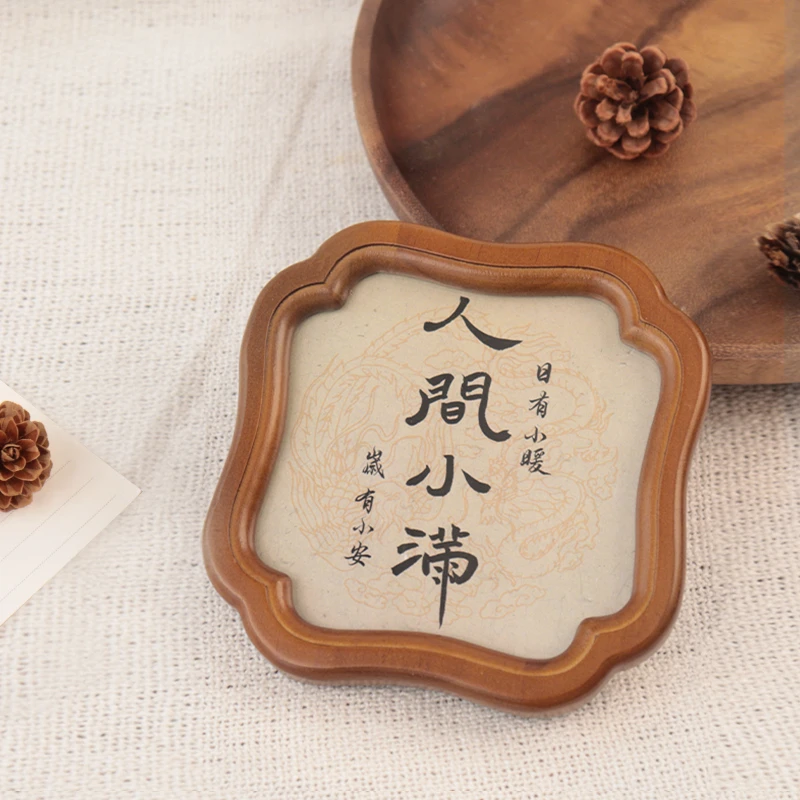 日有小暖
人間小滿
歲有小安